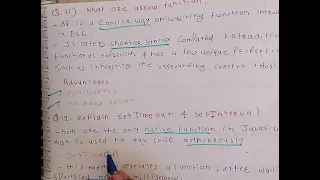 Q.11) What are arrow function.
- AF is a concise way of writing function introdu
in ES6.
- It offers shorter syntax compared to traditi
functional expression & has a few unique Properti
Such as inheriting the surrounding context (this)
Advantages
- Conciseness
- no need return
Q.12. explain setTimeout & SetInterval
- both are the only native function in JavaScri
that is used to run code asyncronously
- SetTimeout
- this method executes a function, after waiti
specified milliseconds